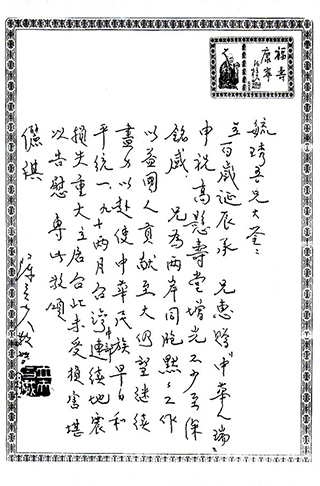 福壽
康寧
毓琦吾兄大鑒:
立百歲誕辰承 兄惠贈"中華人瑞"
申祝高懸壽堂增光不少至深
銘感 兄為兩岸同胞默默工作
以益國人貢獻至大仍望繼續
盡力以赴使中華民族早日和
平統一九十兩月台灣中部連續地震
損失重大立居台北未受損害堪
以告慰專此敬頌
儷祺
陳立夫敬啟